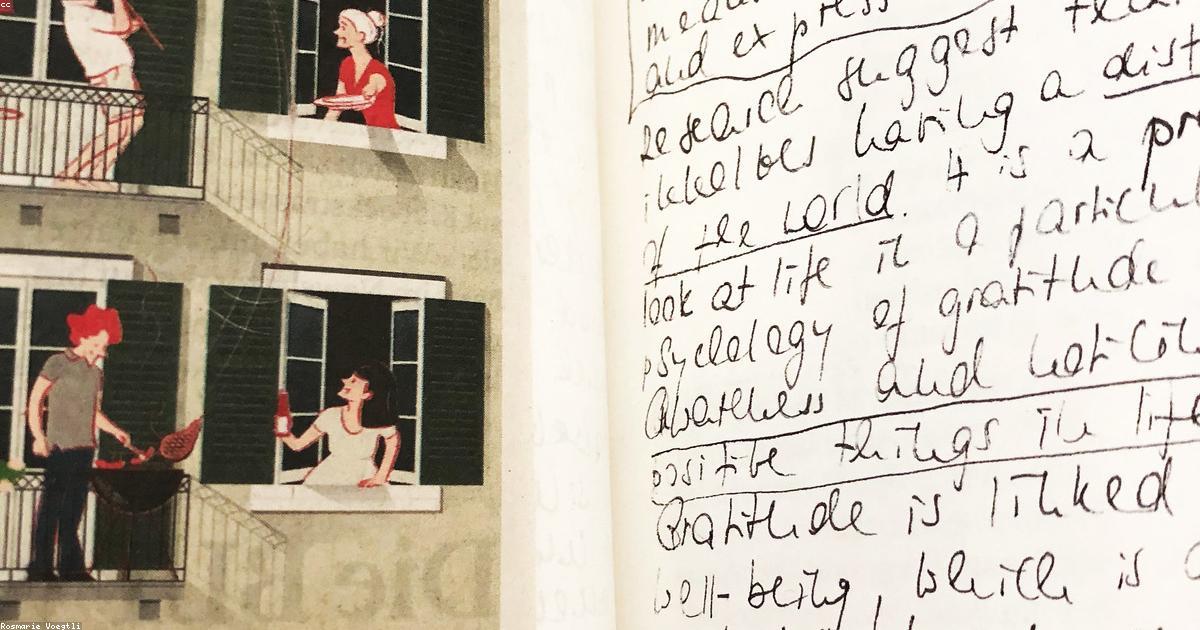 cc
and express
research suggest
having a dist
of the world. It is a pr
look at life it a particul
psychology of gratitude
awareness and noticing
positive things in life
Gratitude is linked
well-being, which is a
Rosmarie Voegtli